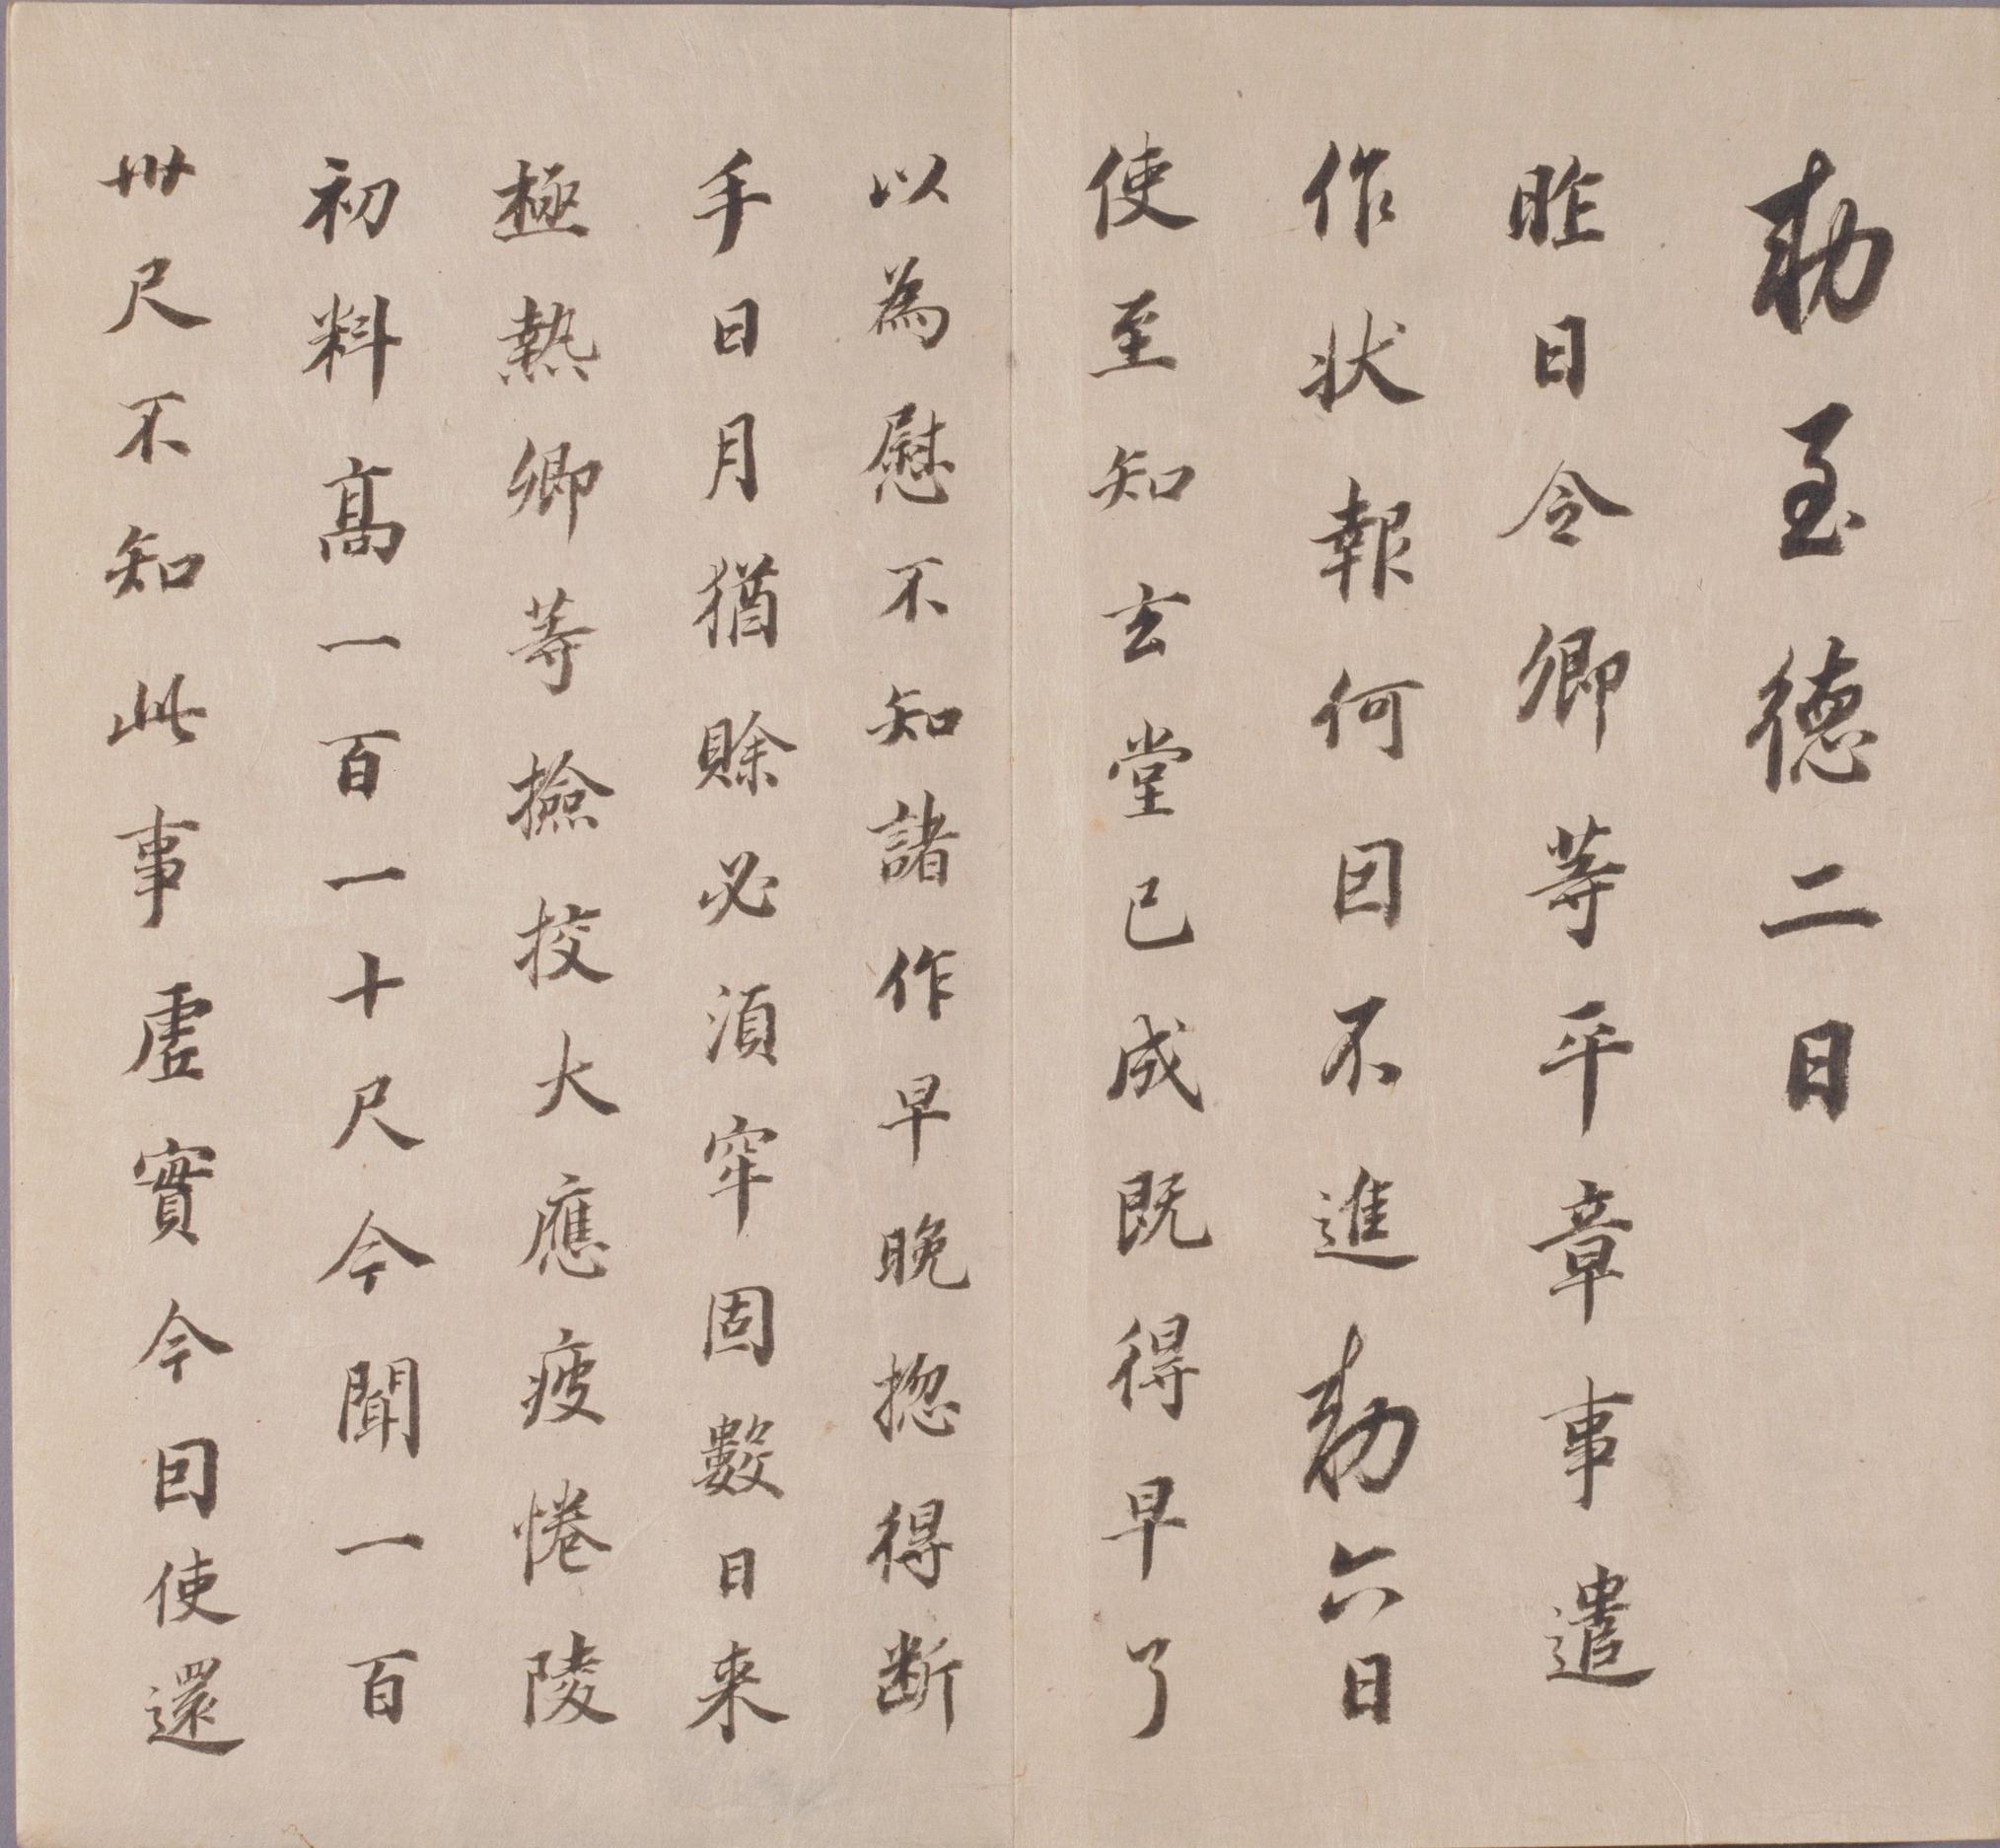 勅至德二日
昨日令卿等平章事遣
作狀報何囙不進勅六日
使至知玄堂已成既得早了
以為慰不知諸作早晚揔得断
手日月猶賒必湏牢固數日来
極熱卿等撿挍大應疲惓陵
初料髙一百一十尺今聞一百
卅尺不知此事虛實今囙使還